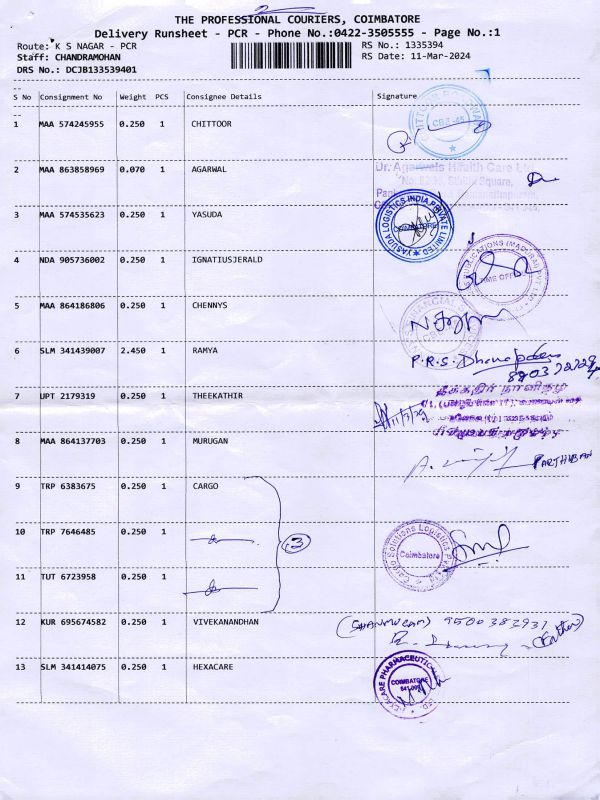 THE PROFESSIONAL COURIERS, COIMBATORE
Delivery Runsheet - PCR - Phone No.:0422-3505555 - Page No.:1
Route: K S NAGAR - PCR RS No.: 1335394
Staff: CHANDRAMOHAN RS Date: 11-Mar-2024
DRS No.: DCJB133539401
S No Consignment No Weight PCS Consignee Details Signature
1 MAA 574245955 0.250 1 CHITTOOR
2 MAA 863858969 0.070 1 AGARWAL
Dr. Agarwals Health Care Ltd
3 MAA 574535623 0.250 1 YASUDA
YASUDA LOGISTICS INDIA PRIVATE LIMITED
COIMBATORE
4 NDA 905736002 0.250 1 IGNATIUSJERALD
TIME OFFICE
5 MAA 864186806 0.250 1 CHENNYS
6 SLM 341439007 2.450 1 RAMYA P.R.S.
7 UPT 2179319 0.250 1 THEEKATHIR
தீக்கதிர் நாளிதழ்
8 MAA 864137703 0.250 1 MURUGAN
PARTHIBAN
9 TRP 6383675 0.250 1 CARGO
10 TRP 7646485 0.250 1 3
Cargo Solutions Logistics
Coimbatore
11 TUT 6723958 0.250 1
12 KUR 695674582 0.250 1 VIVEKANANDHAN (SHANMUGAM) 9500383931
13 SLM 341414075 0.250 1 HEXACARE
PHARMACEUTICAL
COIMBATORE